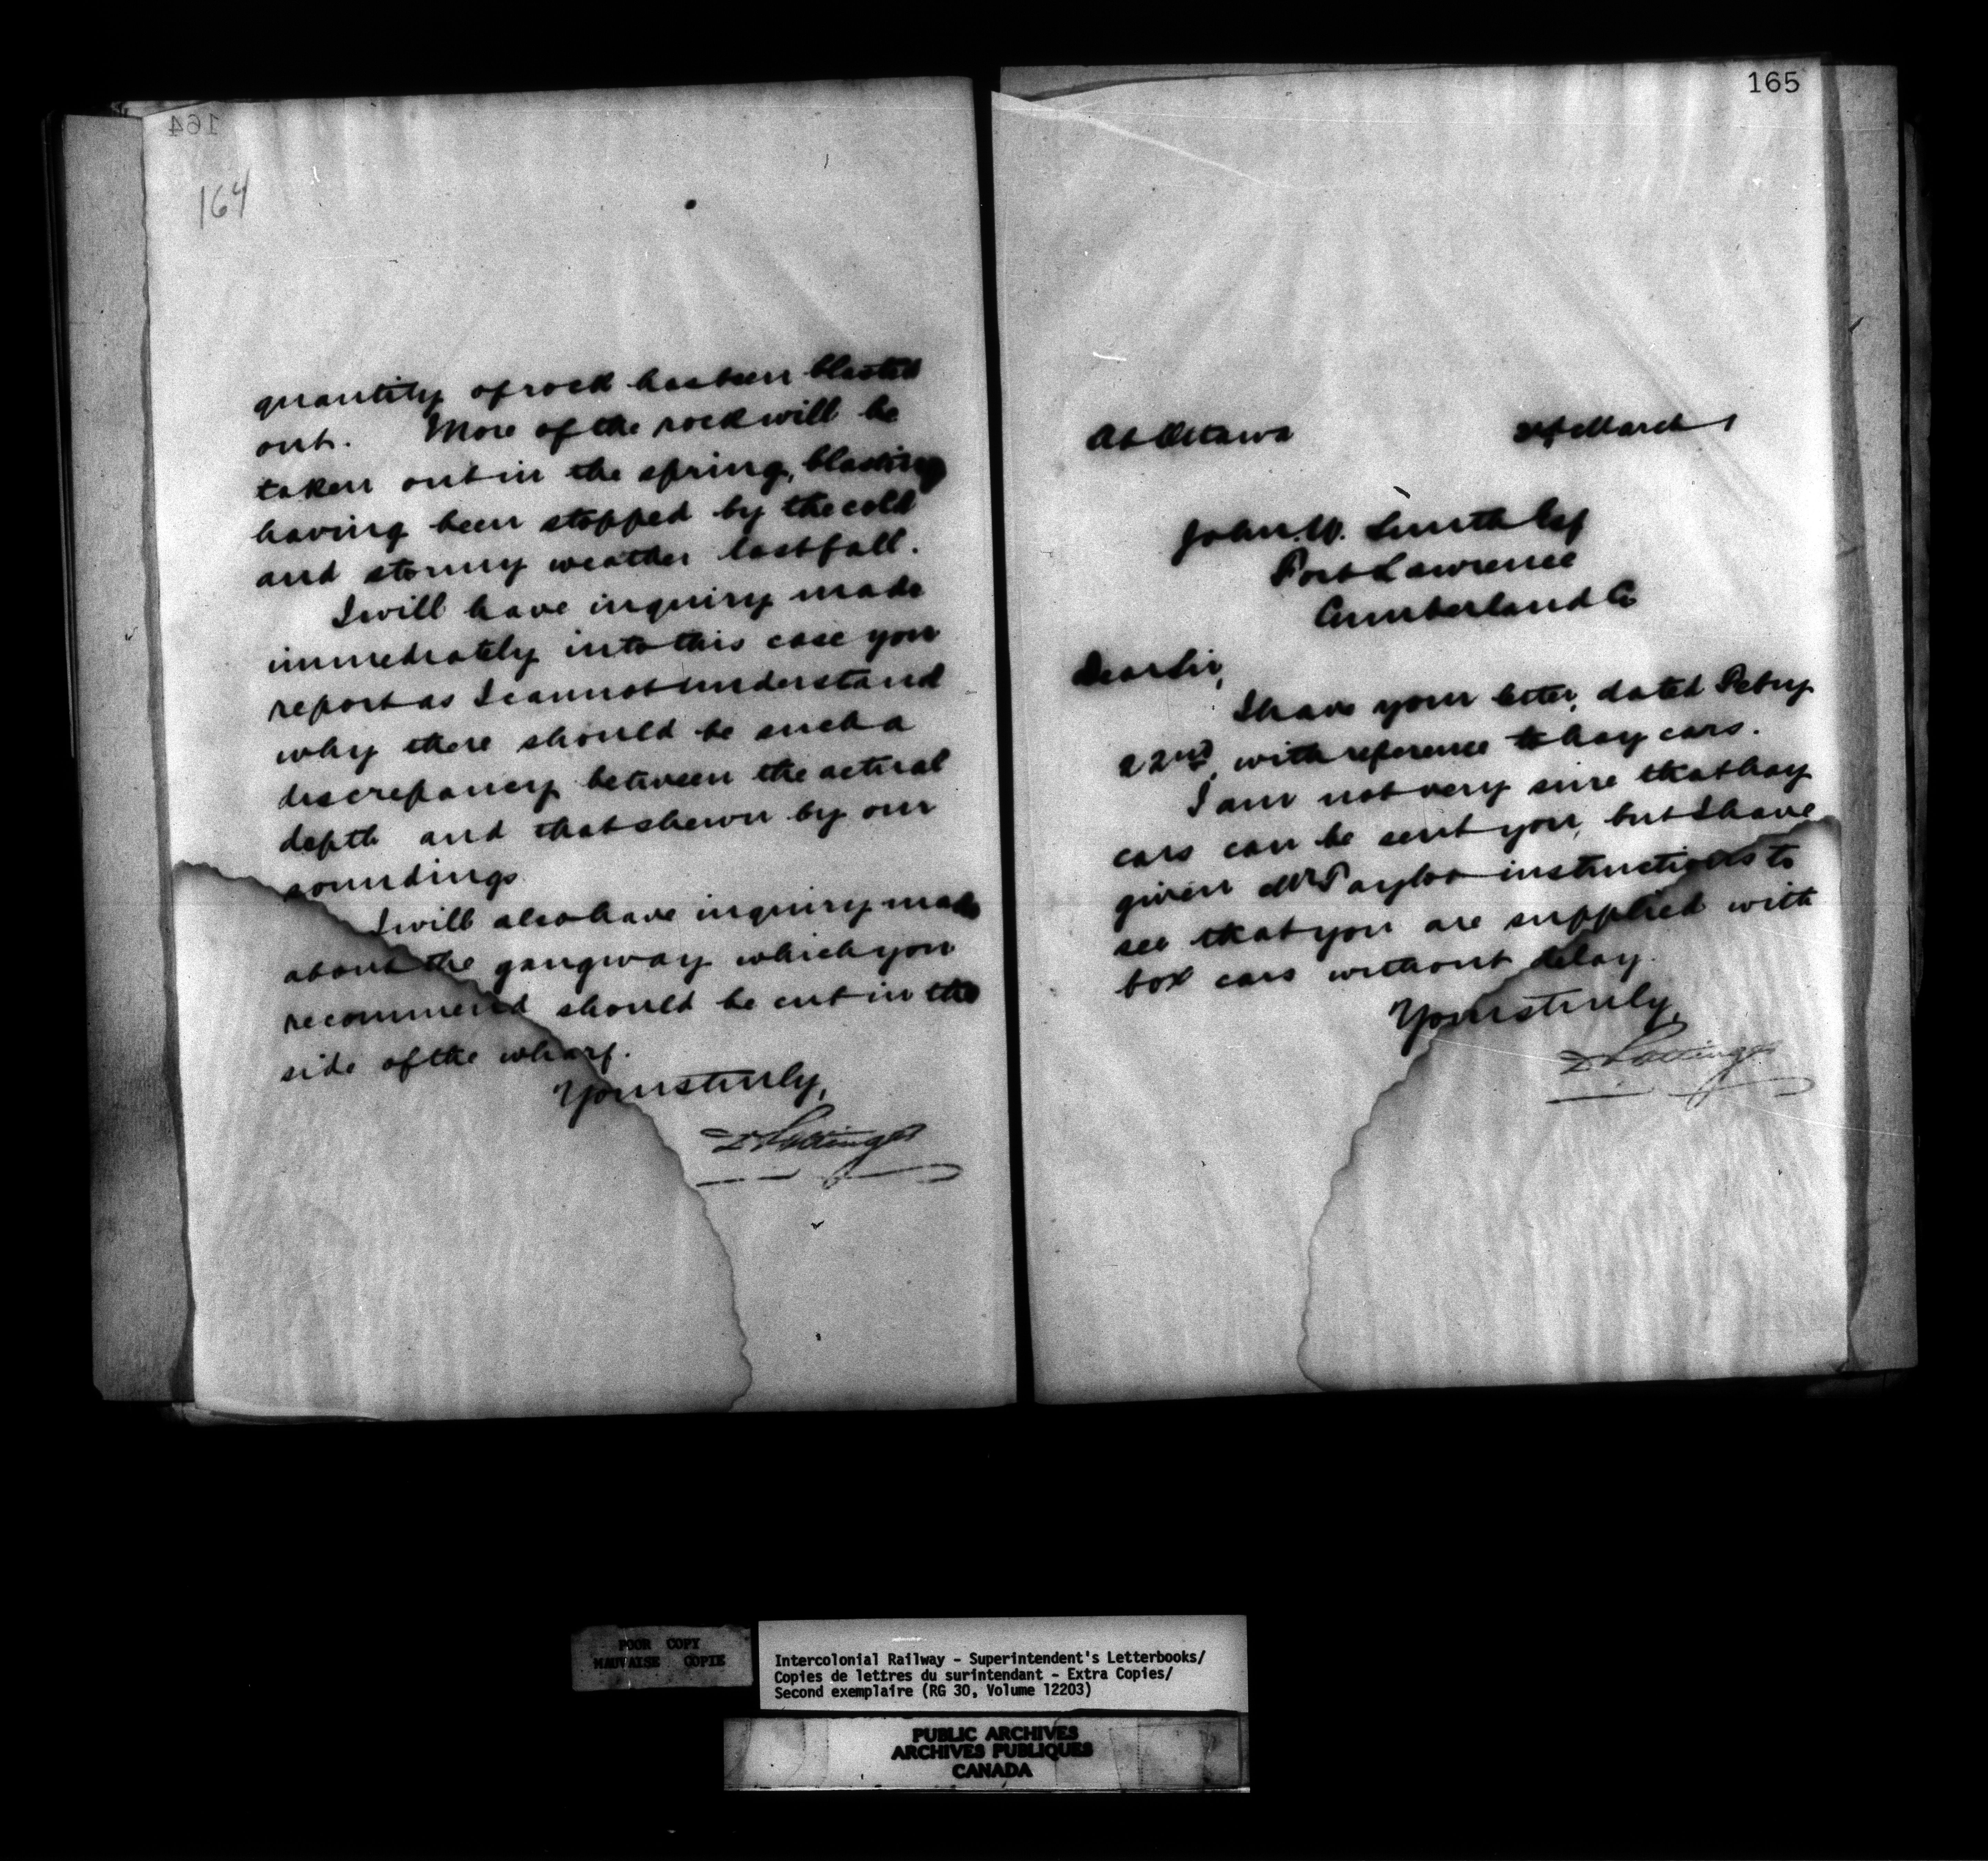 164
164
quantity of rock has been blasted
out. More of the rock will be
taken out in the spring, blasting
having been stopped by the cold
and stormy weather last fall.
I will have inquiry made
immediately into this case you
report as I cannot understand
why there should be such a
discrepancy between the actual
depth and that shewn by our
soundings
I will also have inquiry made
about the gangway which you
recommend should be cut in the
side of the wharf.
Yours truly,
D Pottinger
165
At Ottawa
March
John. W. Smith Esq
Fort Lawrence
Cumberland Co
Dear Sir,
I have your letter, dated Febry
22nd, with reference to hay cars.
I am not very sure that hay
cars can be sent you, but I have
given Mr Taylor instructions to
see that you are supplied with
box cars without delay.
Yours truly,
D Pottinger
POOR COPY
MAUVAISE COPIE
Intercolonial Railway - Superintendent's Letterbooks/
Copies de lettres du surintendant - Extra Copies/
Second exemplaire (RG 30, Volume 12203)
PUBLIC ARCHIVES
ARCHIVES PUBLIQUES
CANADA